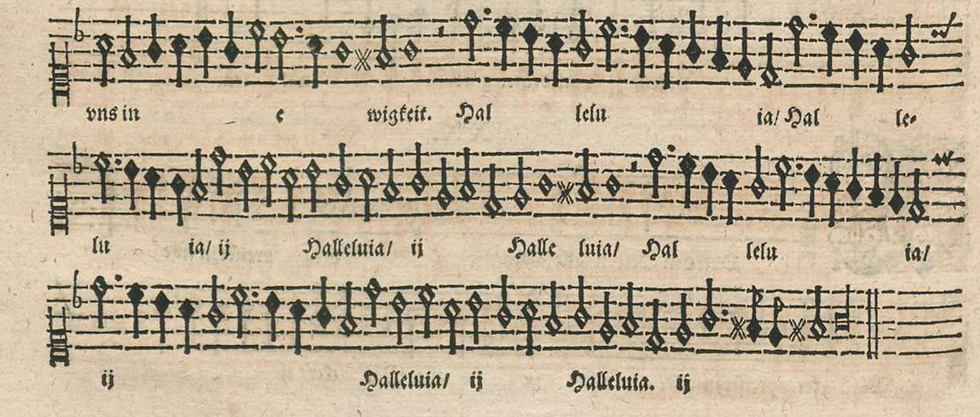 vns in e wigkeit. Hal lelu ia/ Hal le-
lu ia/ ij Halleluia/ ij Halle luia/ Hal lelu ia/
ij Halleluia/ ij Halleluia. ij